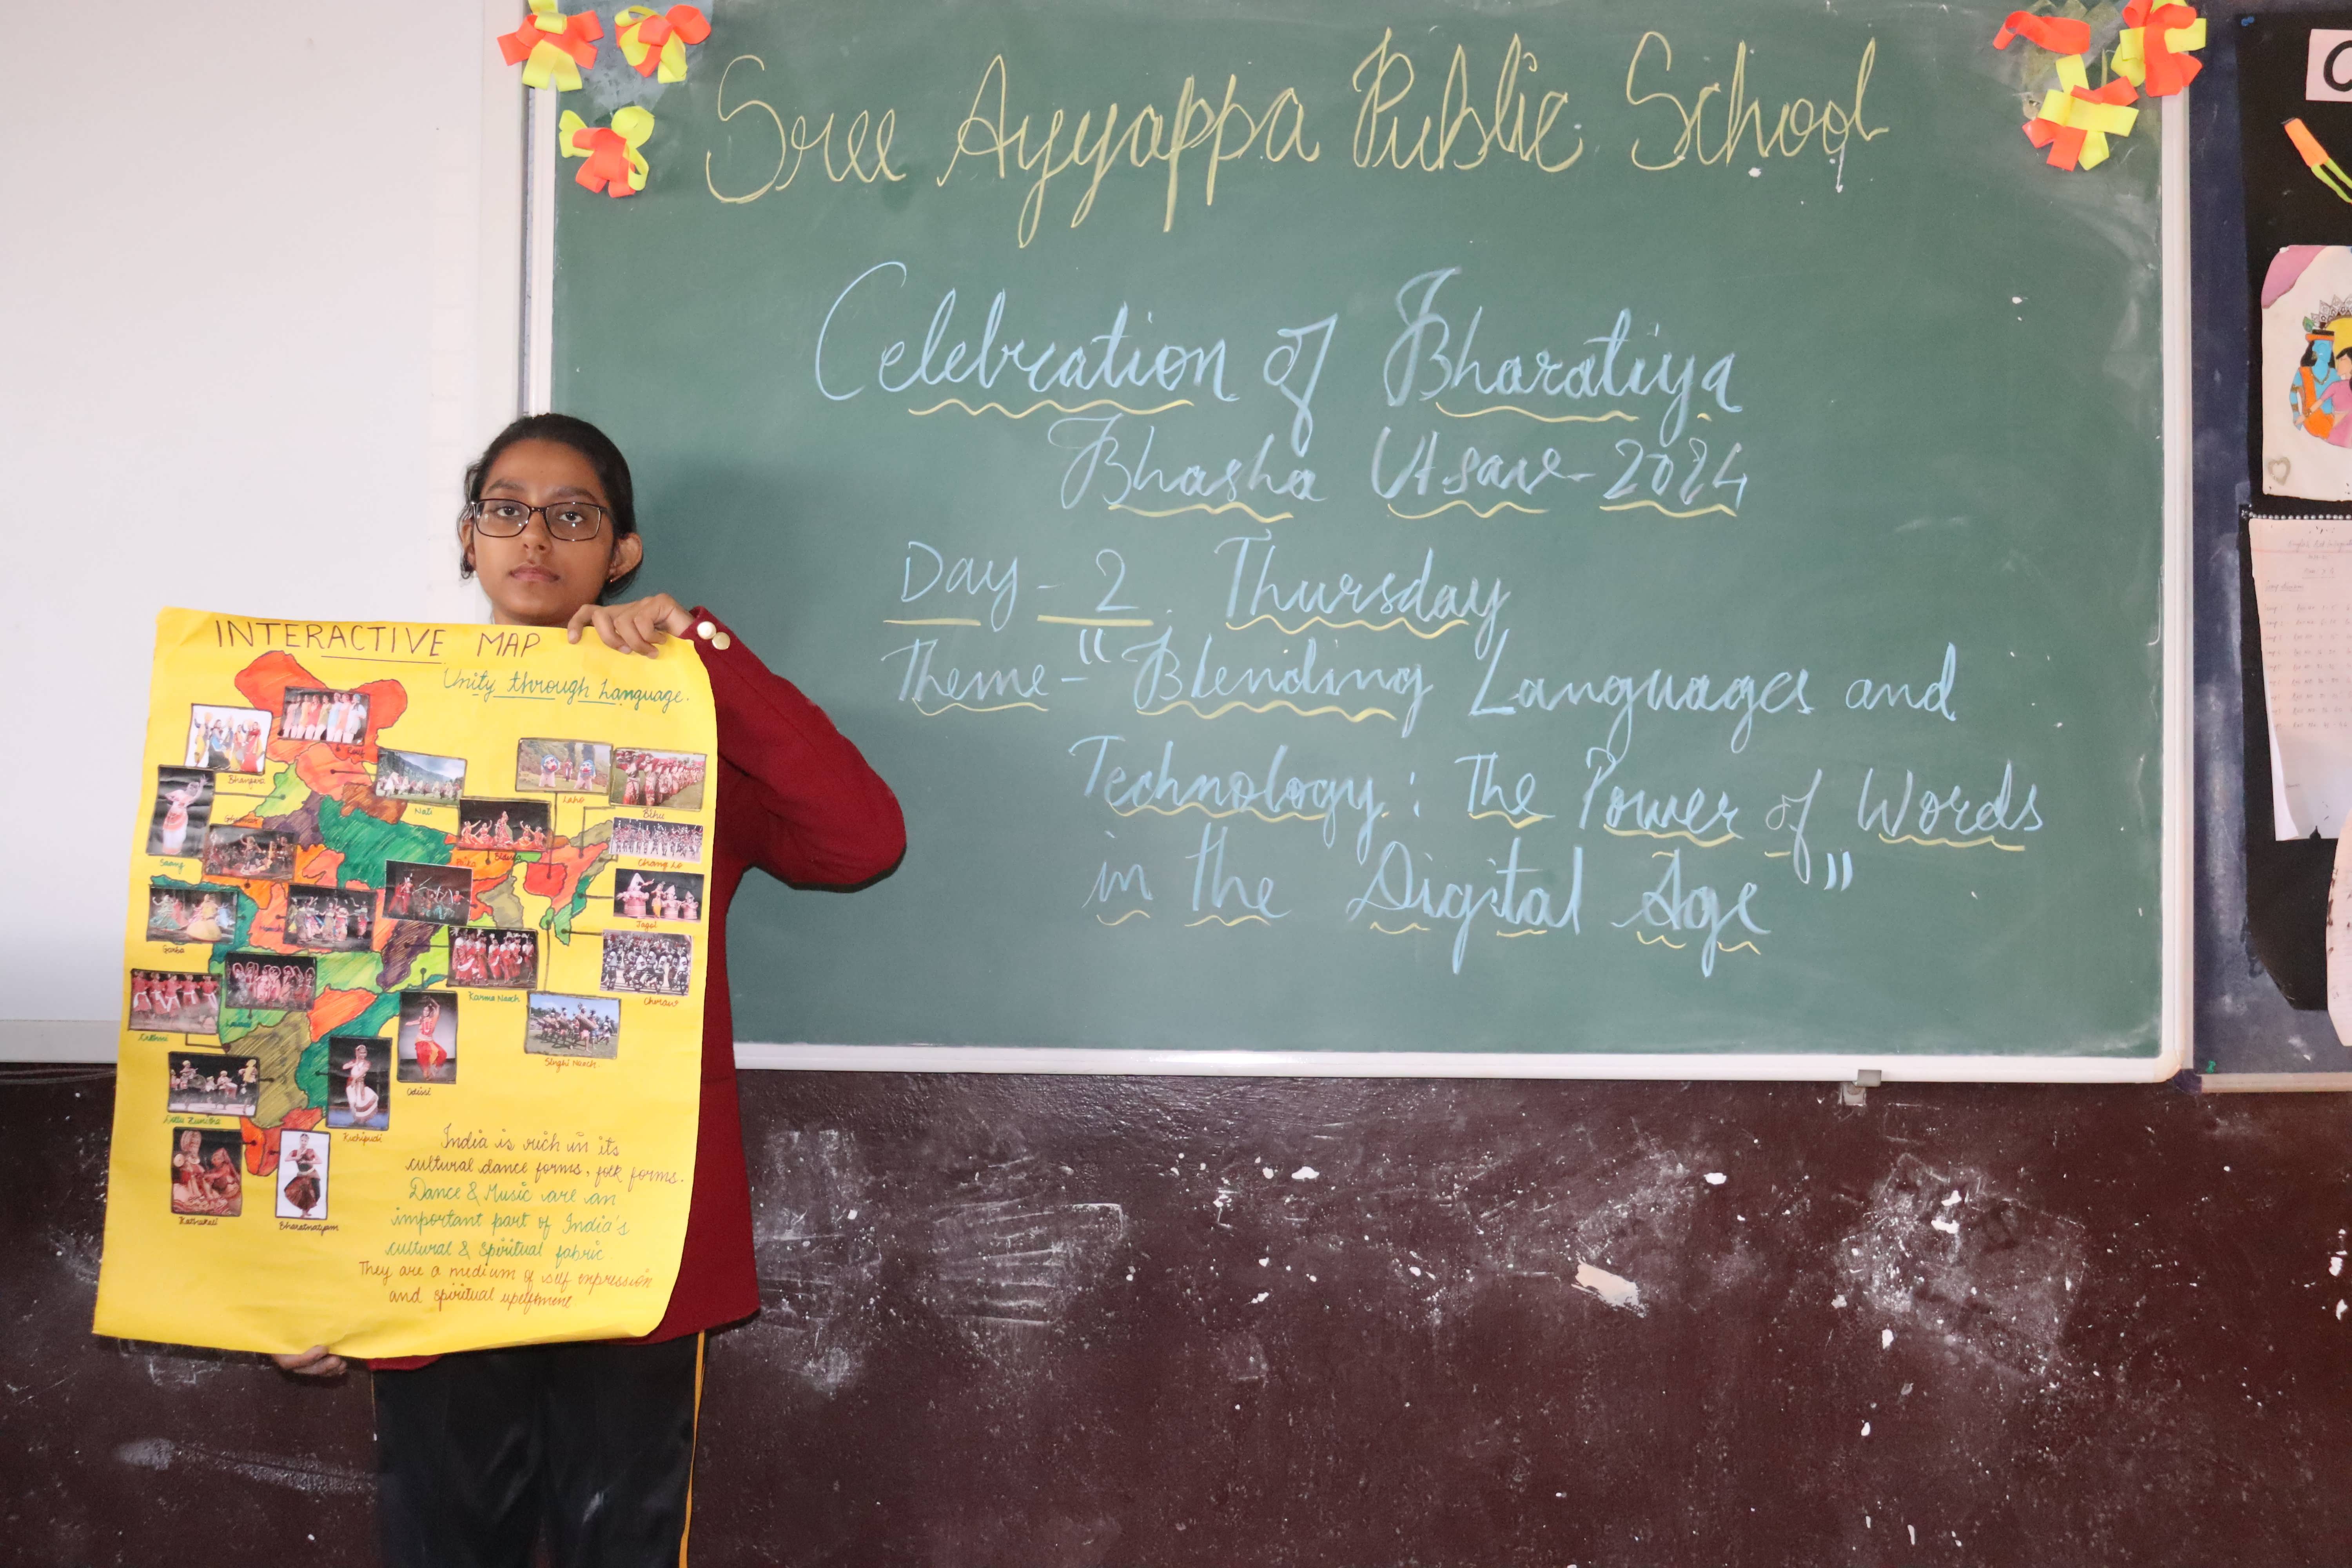 Sree Ayyappa Public School
Celebration of Bharatiya
Bhasha Utsav - 2024
Day - 2. Thursday
Theme - "Blending Languages and
Technology : The Power of Words
in the Digital Age"
INTERACTIVE MAP
Unity through Language.
Bhangra
Nati
Laho
Bihu
Saang
Ghoomar
Bidesia
Chang Lo
Garba
Jagoi
Karma Naach
Cheraw
Lavani
Singhi Naach
Odissi
Kuchipudi
Kathakali
Bharatnatyam
India is rich in its
cultural dance forms, folk forms.
Dance & Music are an
important part of India's
cultural & spiritual fabric
They are a medium of self expression
and spiritual upliftment